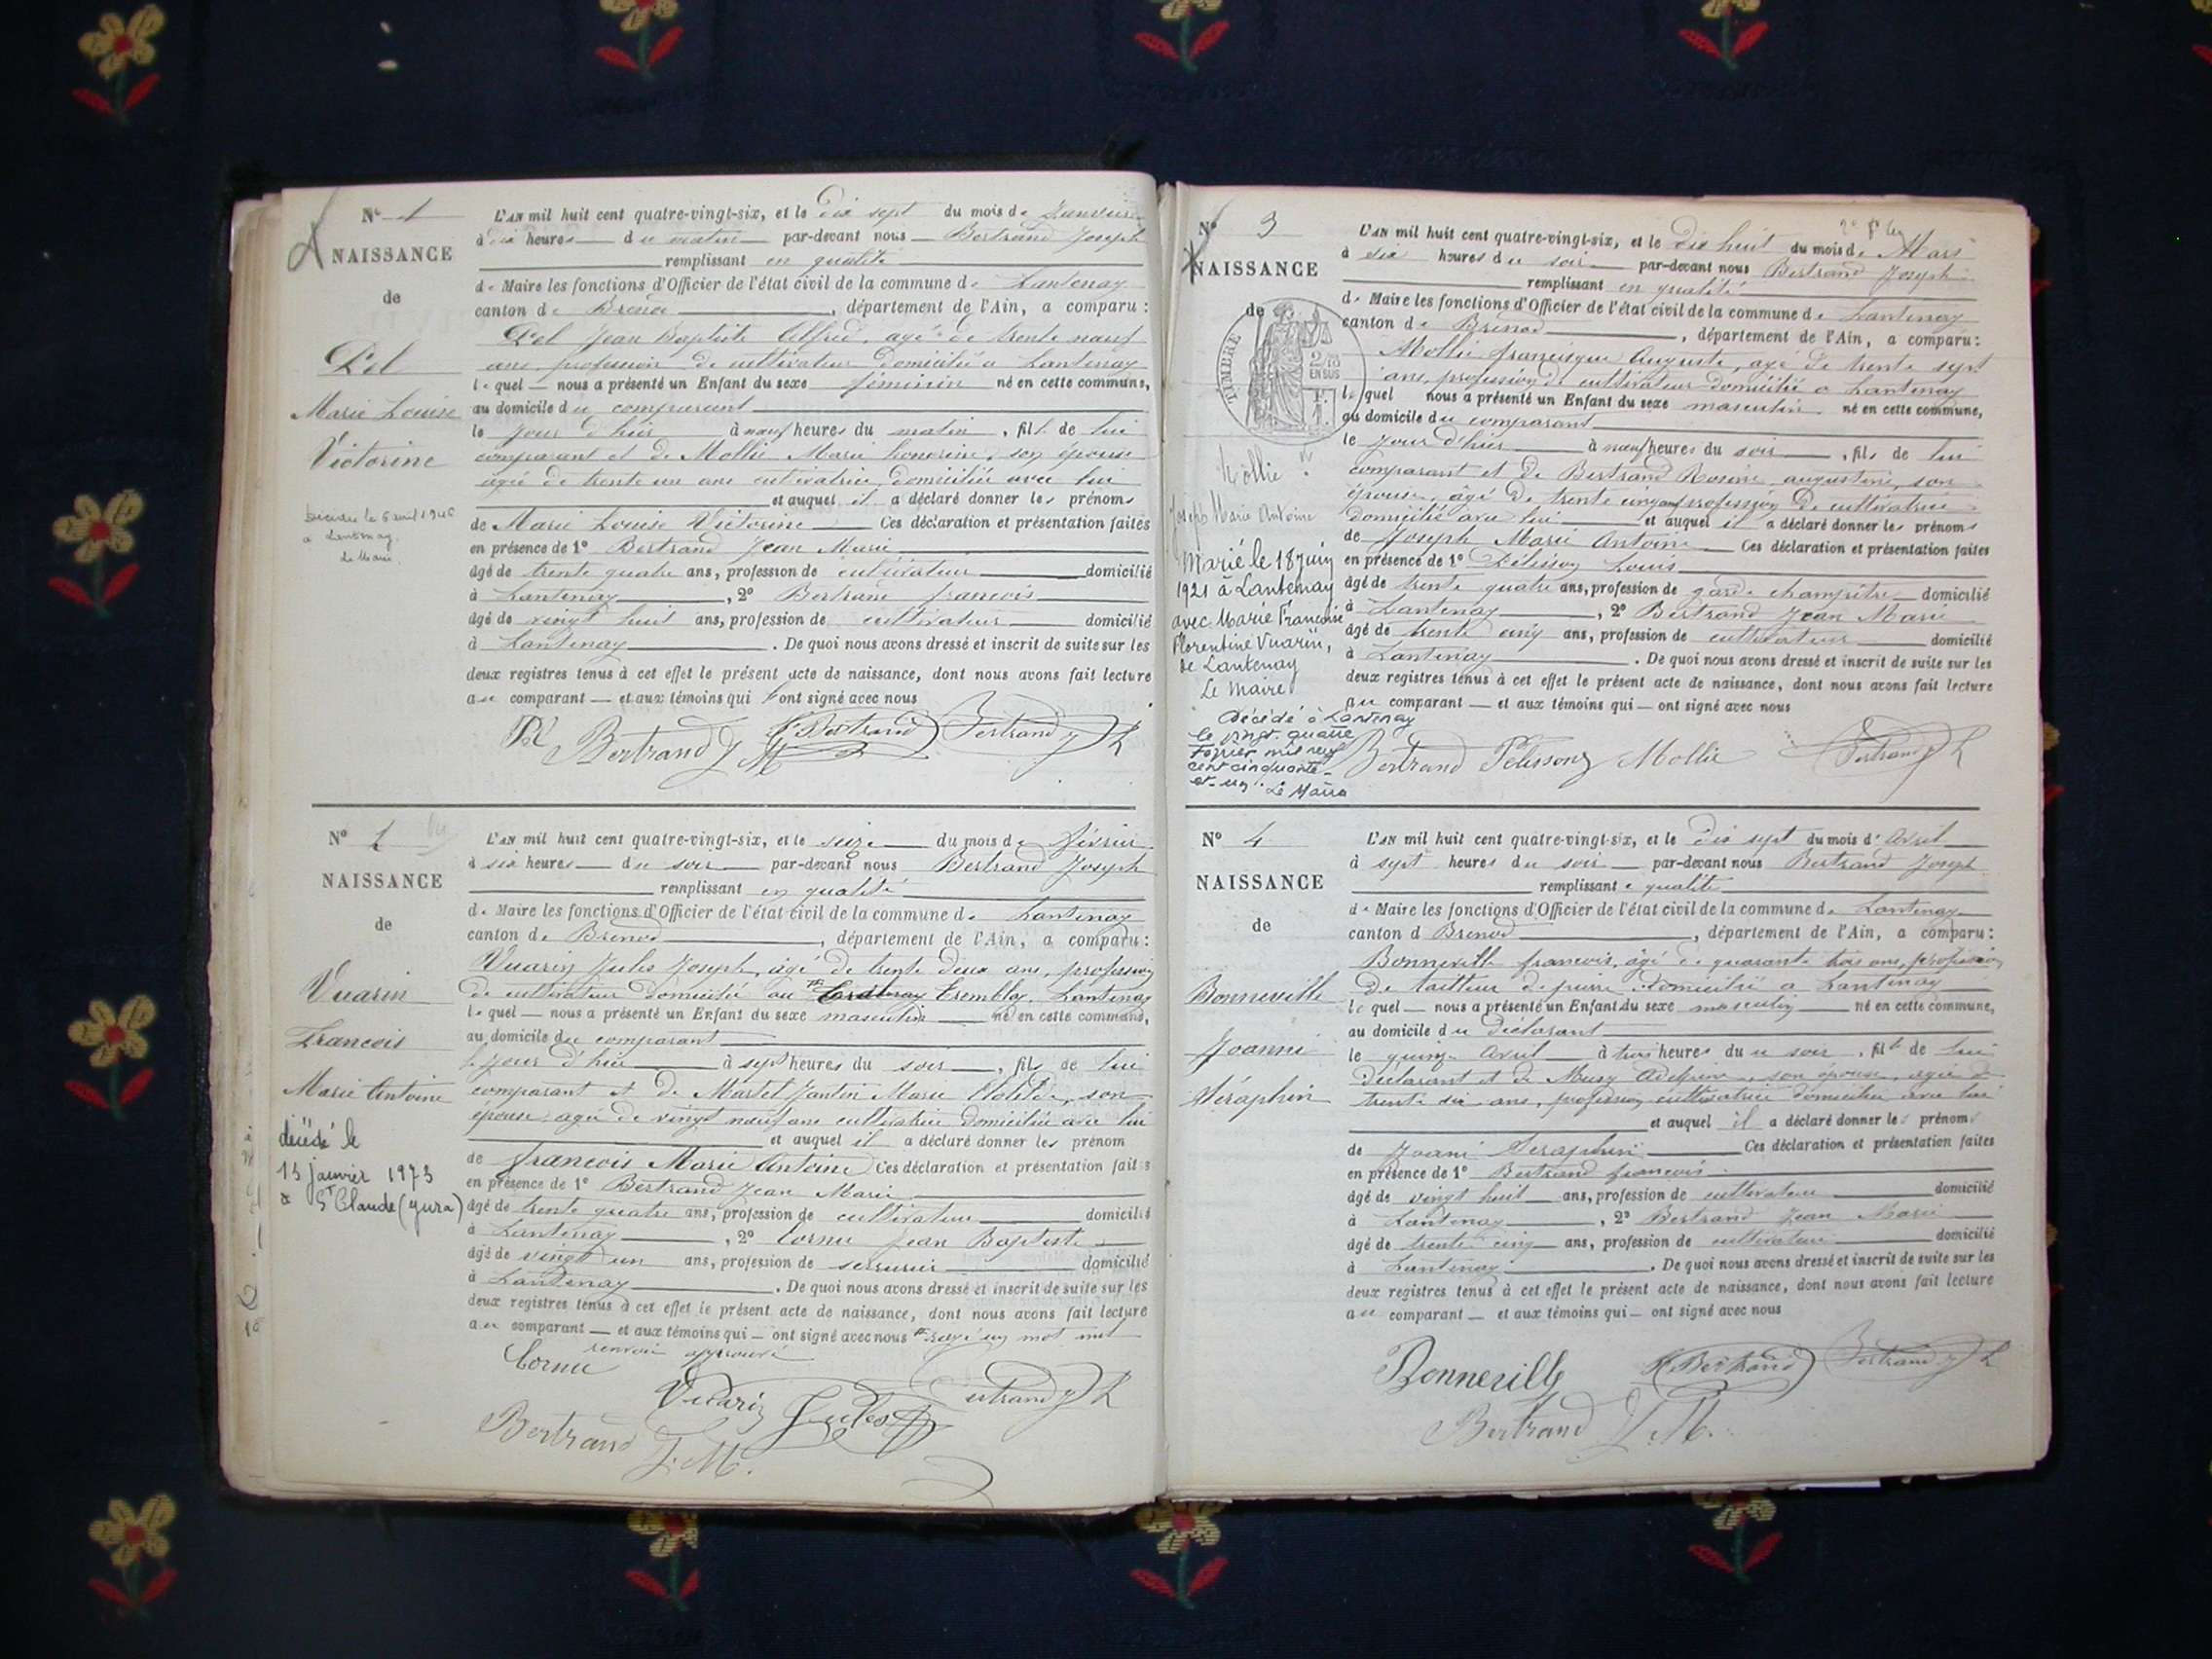 N° 1
NAISSANCE
de
Pel
Marie Louise
Victorine
à Lantenay.
Le Maire.
L'AN mil huit cent quatre-vingt-six, et le dix sept du mois de Janvier
à dix heures du matin par-devant nous Bertrand Joseph
remplissant en qualité
de Maire les fonctions d'Officier de l'état civil de la commune de Lantenay
canton de Brenod, département de l'Ain, a comparu :
Pel Jean Baptiste Alfred, agé de trente neuf
ans, profession de cultivateur domicilié a Lantenay
lequel nous a présenté un Enfant du sexe féminin né en cette commune,
au domicile du comparant
le jour d'hier à neuf heures du matin, fille de lui
comparant et de Mollie Marie honorine, son épouse
agée de trente un ans cultivatrice, domiciliée avec lui
et auquel il a déclaré donner les prénoms
de Marie Louise Victorine Ces déclaration et présentation faites
en présence de 1° Bertrand Jean Marie
âgé de trente quatre ans, profession de cultivateur domicilié
à Lantenay, 2° Bertrand francois
âgé de vingt huit ans, profession de cultivateur domicilié
à Lantenay. De quoi nous avons dressé et inscrit de suite sur les
deux registres tenus à cet effet le présent acte de naissance, dont nous avons fait lecture
au comparant — et aux témoins qui ont signé avec nous
Pel Bertrand J M F Bertrand Bertrand Jh
N° 2
NAISSANCE
de
Vuarin
Francois
Marie Antoine
décédé le
15 janvier 1973
à St Claude (jura)
L'AN mil huit cent quatre-vingt-six, et le seize du mois de février
à six heures du soir par-devant nous Bertrand Joseph
remplissant en qualité
de Maire les fonctions d'Officier de l'état civil de la commune de Lantenay
canton de Brenod, département de l'Ain, a comparu :
Vuarin Jules Joseph, âgé de trente deux ans, profession
de cultivateur domicilié au Tremblay, Lantenay
lequel — nous a présenté un Enfant du sexe masculin né en cette commune,
au domicile du comparant
le jour d'hier à sept heures du soir, fils de lui
comparant et de Martel Jantin Marie Clotilde, son
épouse agée de vingt neuf ans cultivatrice domiciliée avec lui
et auquel il a déclaré donner les prénom
de francois Marie Antoine Ces déclaration et présentation faites
en présence de 1° Bertrand Jean Marie
âgé de trente quatre ans, profession de cultivateur domicilié
à Lantenay, 2° Cornu Jean Baptiste
âgé de vingt un ans, profession de serrurier domicilié
à Lantenay. De quoi nous avons dressé et inscrit de suite sur les
deux registres tenus à cet effet le présent acte de naissance, dont nous avons fait lecture
au comparant — et aux témoins qui — ont signé avec nous rayé un mot nul
renvoi approuvé
Cornu
Vuarin Jules Bertrand Jh
Bertrand J. M.
N° 3
NAISSANCE
de
TIMBRE
2/10
EN SUS
Mollie
Joseph Marie Antoine
Marié le 18 juin
1921 à Lantenay
avec Marie Françoise
Florentine Vuarin,
de Lantenay
Le Maire
Décédé à Lantenay
le vingt-quatre
Février mil neuf
cent cinquante-
et-un. Le Maire
L'AN mil huit cent quatre-vingt-six, et le dix huit du mois de Mars
à six heures du soir par-devant nous Bertrand Joseph
remplissant en qualité
de Maire les fonctions d'Officier de l'état civil de la commune de Lantenay
canton de Brenod, département de l'Ain, a comparu :
Mollie francisque Auguste, agé de trente sept
ans, profession de cultivateur domicilié a Lantenay
lequel nous a présenté un Enfant du sexe masculin né en cette commune,
au domicile du comparant
le jour d'hier à neuf heures du soir, fils de lui
comparant et de Bertrand Rosine augustine, son
épouse, âgé de trente cinq ans profession de cultivatrice
domicilié avec lui et auquel il a déclaré donner les prénoms
de Joseph Marie Antoine Ces déclaration et présentation faites
en présence de 1° Pélisson Louis
âgé de trente quatre ans, profession de garde champêtre domicilié
à Lantenay, 2° Bertrand Jean Marie
âgé de trente cinq ans, profession de cultivateur domicilié
à Lantenay. De quoi nous avons dressé et inscrit de suite sur les
deux registres tenus à cet effet le présent acte de naissance, dont nous avons fait lecture
au comparant — et aux témoins qui — ont signé avec nous
Bertrand Pelisson Mollie Bertrand Jh
N° 4
NAISSANCE
de
Bonneville
Joanni
Séraphin
L'AN mil huit cent quatre-vingt-six, et le dix sept du mois d'Avril
à sept heures du soir par-devant nous Bertrand Joseph
remplissant e qualité
de Maire les fonctions d'Officier de l'état civil de la commune de Lantenay
canton d Brenod, département de l'Ain, a comparu :
Bonneville francois, âgé de quarante trois ans, profession
de tailleur de pierre domicilié a Lantenay
lequel — nous a présenté un Enfant du sexe masculin né en cette commune,
au domicile du déclarant
le quinze Avril à trois heures du soir, fils de lui
déclarant et de Musy, son épouse, agée de
trente six ans, profession cultivatrice domiciliée avec lui
et auquel il a déclaré donner les prénoms
de Joani Seraphin Ces déclaration et présentation faites
en présence de 1° Bertrand francois
âgé de vingt huit ans, profession de cultivateur domicilié
à Lantenay, 2° Bertrand Jean Marie
âgé de trente cinq ans, profession de cultivateur domicilié
à Lantenay. De quoi nous avons dressé et inscrit de suite sur les
deux registres tenus à cet effet le présent acte de naissance, dont nous avons fait lecture
au comparant — et aux témoins qui — ont signé avec nous
Bonneville F Bertrand Bertrand Jh
Bertrand J. M.